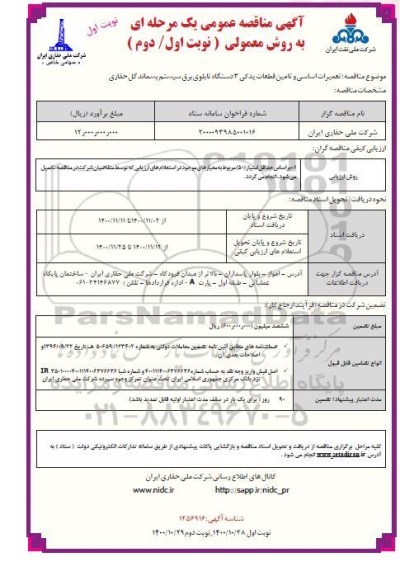 آگهی مناقصه عمومی یک مرحله ای
به روش معمولی ( نوبت اول/ دوم )
نوبت اول
شرکت ملی نفت ایران
شرکت ملی حفاری ایران
موضوع مناقصه: تعمیرات اساسی و تامین قطعات یدکی ۳ دستگاه تابلوی برق سیستم پسماند گل حفاری
مشخصات مناقصه:
نام مناقصه گزار
شماره فراخوان سامانه ستاد
مبلغ برآورد (ریال)
شرکت ملی حفاری ایران
۲۰۰۰۰۹۳۹۸۵۰۰۱۰۱۶
۱۲٬۰۰۰٬۰۰۰٬۰۰۰
ارزیابی کیفی مناقصه گران:
روش ارزیابی
بر اساس حداقل امتیاز (۵۰) مربوط به معیارهای موجود در استعلام های ارزیابی که توسط متقاضیان شرکت در مناقصه تکمیل
می شود، انجام می گردد.
نحوه دریافت / تحویل اسناد مناقصه:
دریافت اسناد
تاریخ شروع و پایان
دریافت اسناد
از ۱۴۰۰/۱۱/۰۲ تا ۱۴۰۰/۱۱/۱۱
تاریخ شروع و پایان تحویل
استعلام های ارزیابی کیفی
از ۱۴۰۰/۱۱/۱۲ تا ۱۴۰۰/۱۱/۲۵
آدرس مناقصه گزار جهت
دریافت اطلاعات
آدرس – اهواز – بلوار پاسداران – بالاتر از میدان فرودگاه – شرکت ملی حفاری ایران – ساختمان پایگاه
عملیاتی – طبقه اول – پارت A - اداره قراردادها – تلفن : ۳۴۱۴۶۸۷۷-۰۶۱
تضمین شرکت در مناقصه (فرآیند ارجاع کار):
مبلغ تضمین
ششصد میلیون (۶۰۰٬۰۰۰٬۰۰۰) ریال
انواع تضامین قابل قبول
اصلاحات بعدی آن.
نزد بانک مرکزی جمهوری اسلامی ایران تحت عنوان تمرکز وجوه سپرده شرکت ملی حفاری ایران
مدت اعتبار پیشنهاد/ تضمین
۹۰ روز ( برای یک بار در سقف مدت اعتبار اولیه قابل تمدید باشد)
ParsNamadData
۰۲۱-۸۸۳۴۹۶۷۰-۵
کلیه مراحل برگزاری مناقصه از دریافت و تحویل اسناد مناقصه و بازگشایی پاکات پیشنهادی از طریق سامانه تدارکات الکترونیکی دولت ( ستاد ) به
آدرس www.setadiran.ir انجام می شود.
کانال های اطلاع رسانی شرکت ملی حفاری ایران
www.nidc.ir http://sapp.ir/nidc_pr
شناسه آگهی: ۱۲۵۶۹۱۶
نوبت اول ۱۴۰۰/۱۰/۲۸ ـ نوبت دوم ۱۴۰۰/۱۰/۲۹